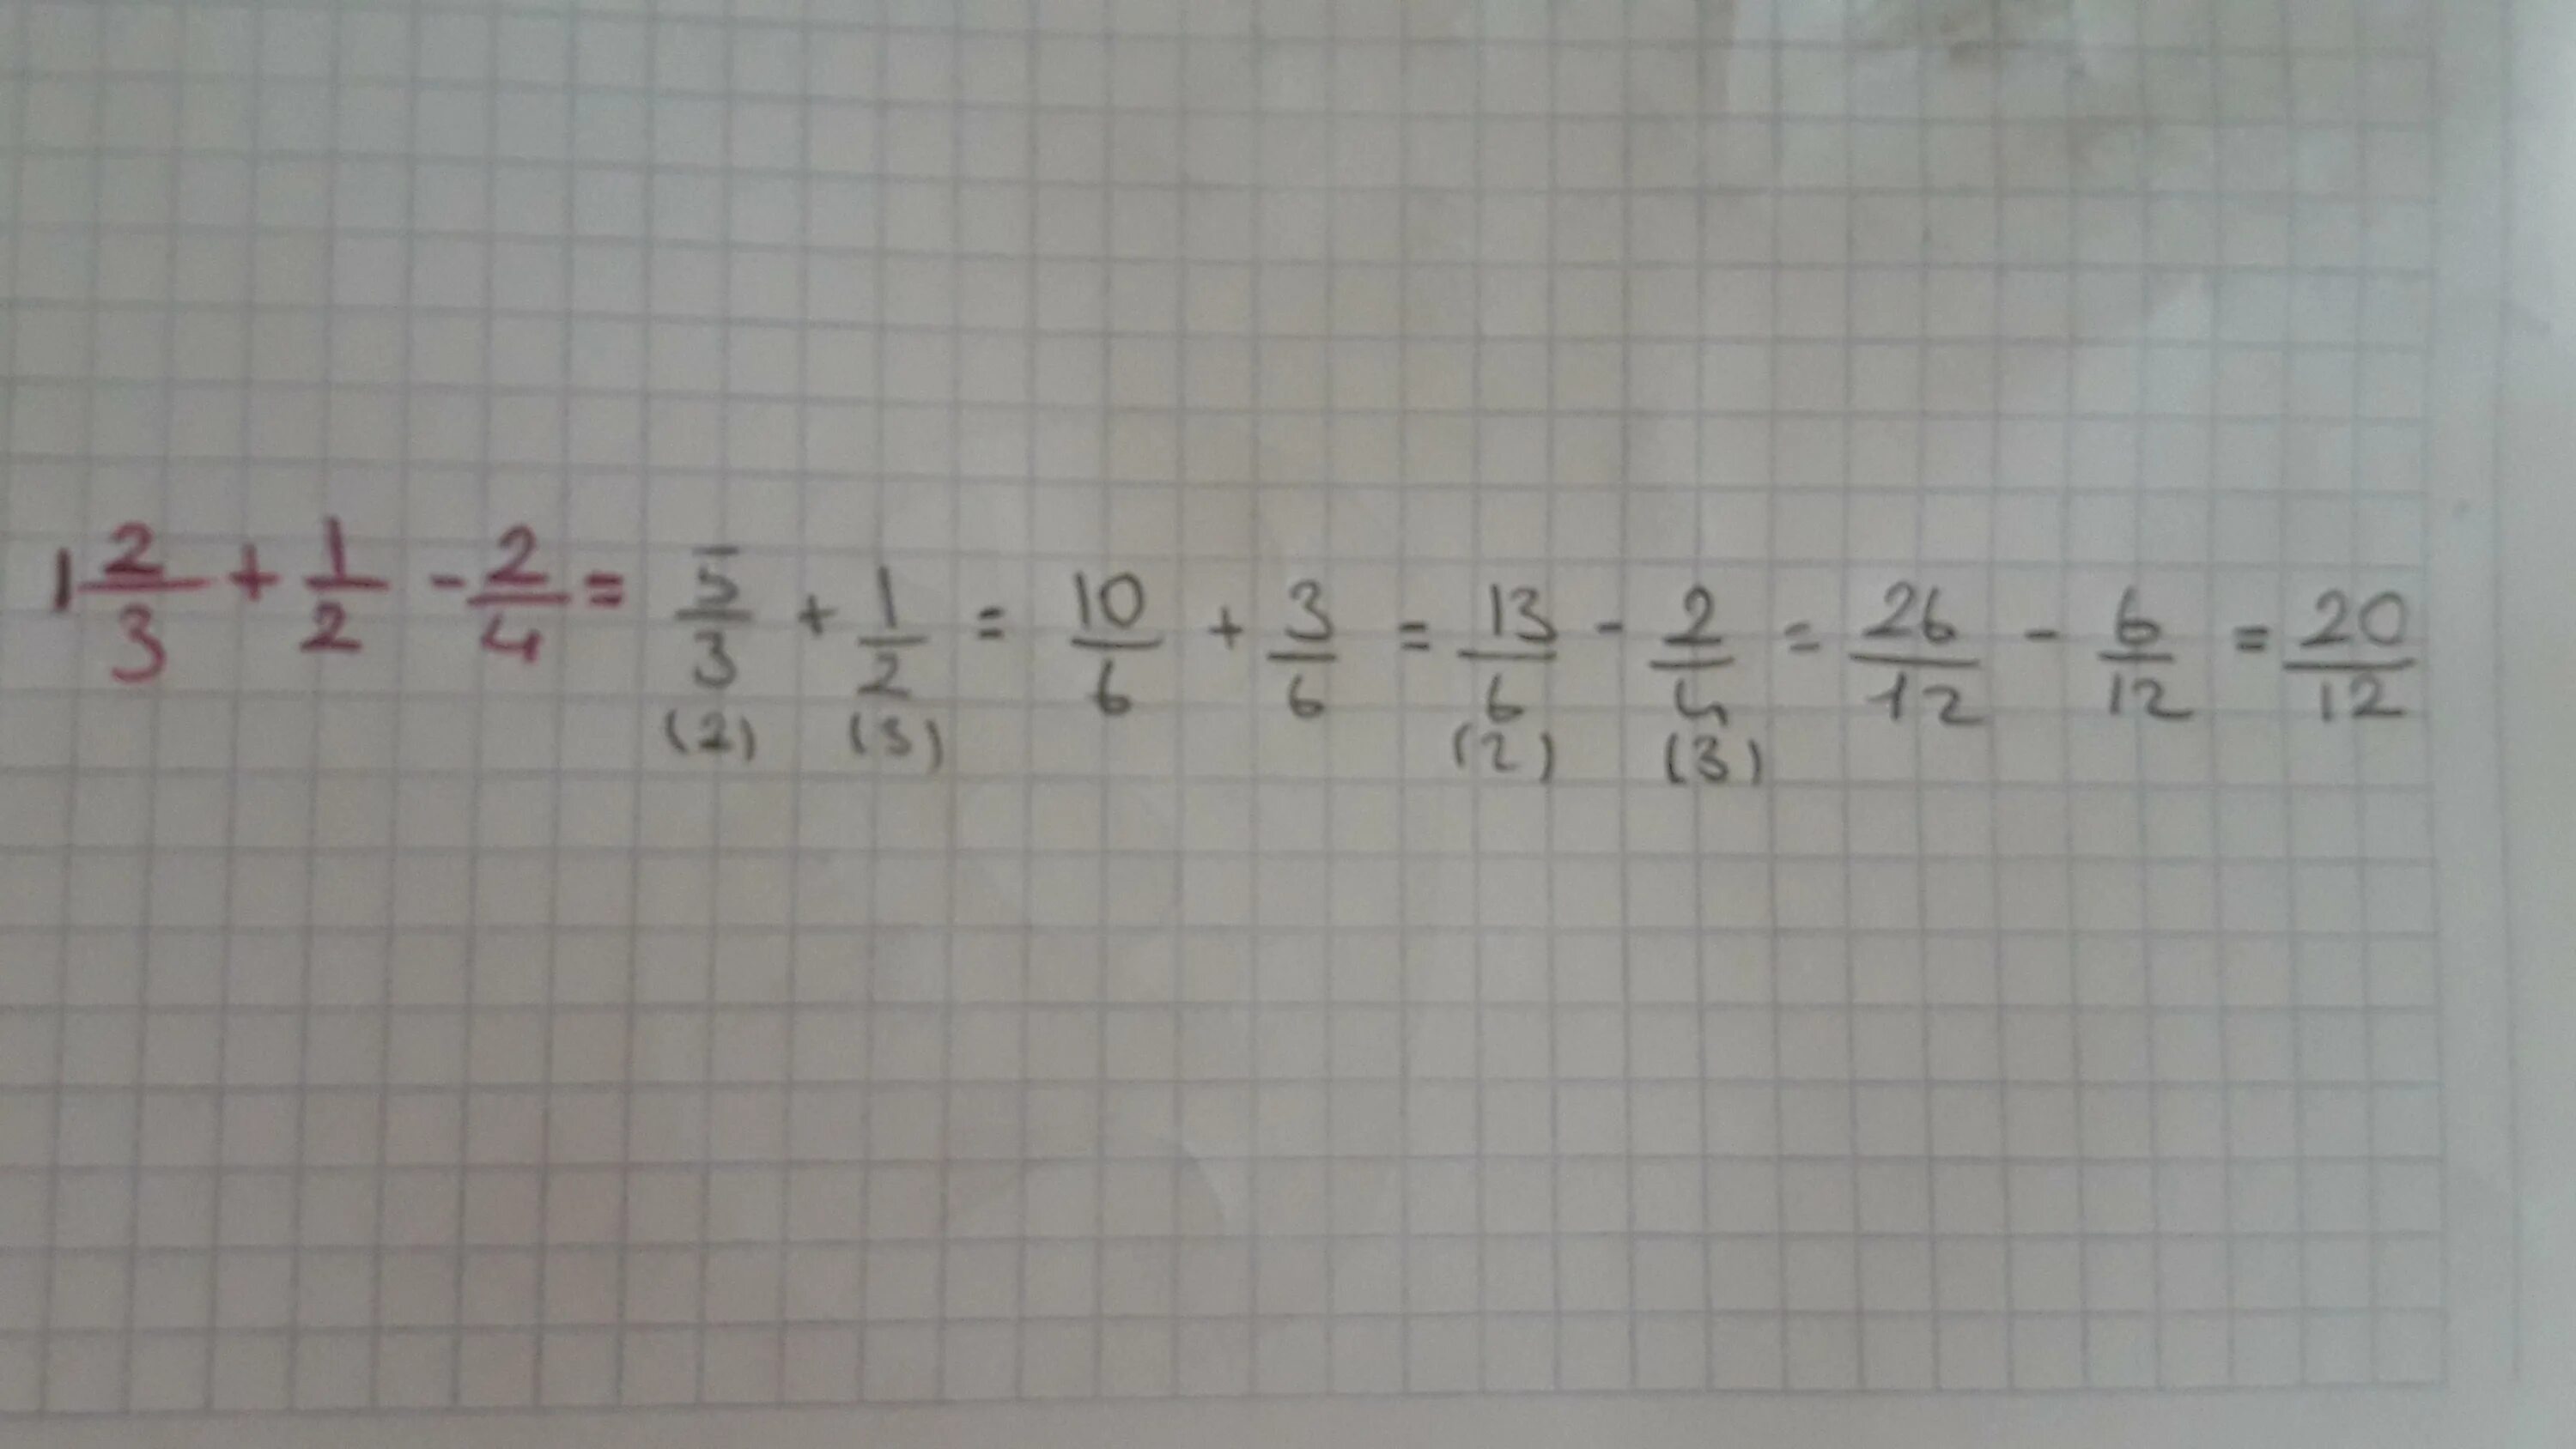 1 2/3 + 1/2 - 2/4 = 5/3 + 1/2 = 10/6 + 3/6 = 13/6 - 2/4 = 26/12 - 6/12 = 20/12
(2) (3) (2) (3)